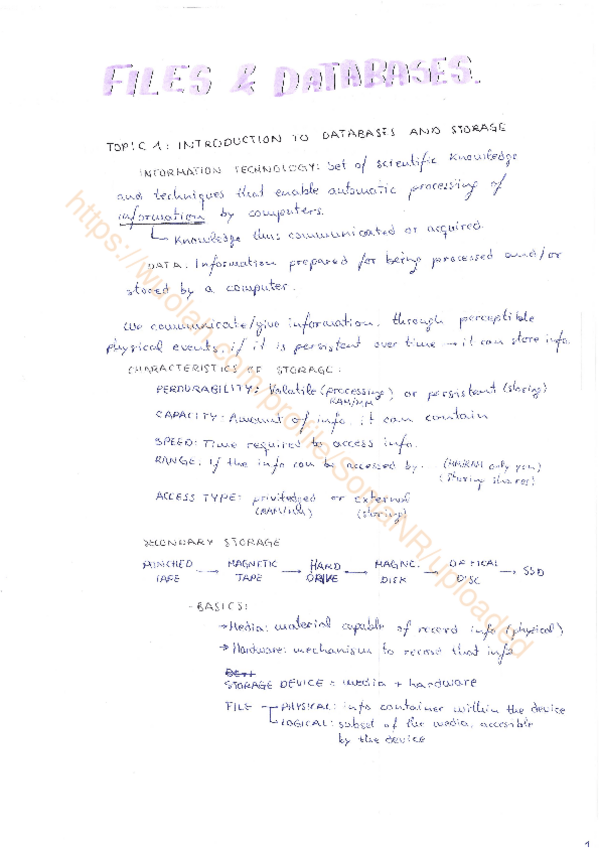 FILES & DATABASES.
TOPIC 1: INTRODUCTION TO DATABASES AND STORAGE
INFORMATION TECHNOLOGY: Set of scientific knowledge
and techniques that enable automatic processing of
information by computers.
Knowledge thus communicated or acquired.
DATA: Information prepared for being processed and/or
stored by a computer.
We communicate/give information, through perceptible
physical events, if it is persistent over time → it can store info.
CHARACTERISTICS OF STORAGE:
PERDURABILITY: Volatile (processing) or persistent (storing)
RAM/MM
CAPACITY: Amount of info. it can contain
SPEED: Time required to access info.
RANGE: if the info can be accessed by. (MM/RAM only you)
(storing shares)
ACCESS TYPE: priviledged or external
(RAM/MM) (storing)
SECONDARY STORAGE
PUNCHED TAPE → MAGNETIC TAPE → HARD DRIVE → MAGNE. DISK → OPTICAL DISC → SSD
- BASICS:
→ Media: material capable of record info (physical)
→ Hardware: mechanism to record that info
STORAGE DEVICE = media + hardware
FILE PHYSICAL: info container within the device
LOGICAL: subset of the media, accesible
by the device
https://wuolah.com/profile/SoniaNR/uploaded
1